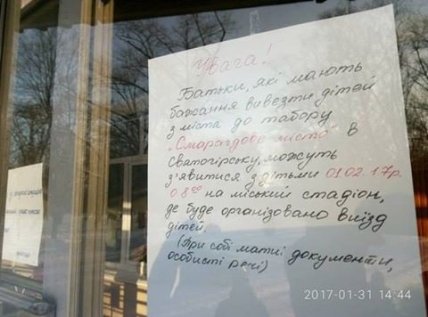 Увага!
Батьки, які мають
бажання вивезти дітей
з міста до табору
"Смарагдове місто" в
Святогірську, можуть
з'явитися з дітьми 01.02.17р.
о 8⁰⁰ на міський стадіон,
де буде організовано виїзд
дітей.
(При собі мати: документи,
особисті речі)
2017-01-31 14:44